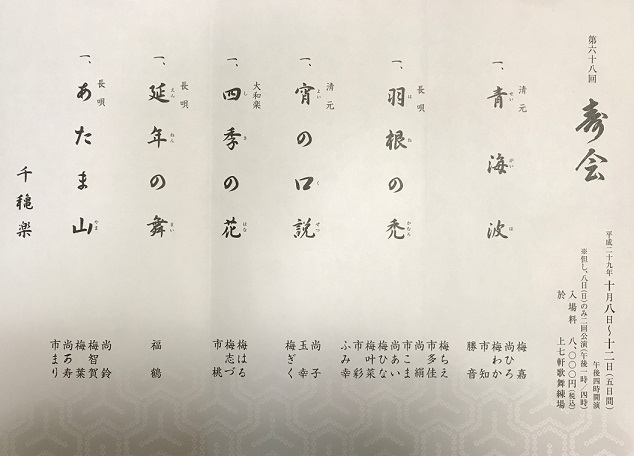 第六十八回
寿会
平成二十九年 十月八日～十二日(五日間)
午後四時開演
※但し、八日(日)のみ二回公演(午後一時/四時)
入場料 八、〇〇〇円(税込)
於 上七軒歌舞練場
一、清元 青海波
せいがいは
梅嘉
尚ひろ
梅わか
市知
勝音
一、長唄 羽根の禿
はねかむろ
梅ちえ
市多佳
尚絹
市こま
尚あい
梅ひな
梅叶菜
市彩
ふみ幸
一、清元 宵の口説
よいくぜつ
尚子
玉幸
梅ぎく
一、大和楽 四季の花
しきはな
梅はる
梅志づ
市桃
一、長唄 延年の舞
えんねんまい
福鶴
一、長唄 あたま山
やま
尚鈴
梅智賀
梅葉
尚可寿
市まり
千穐楽